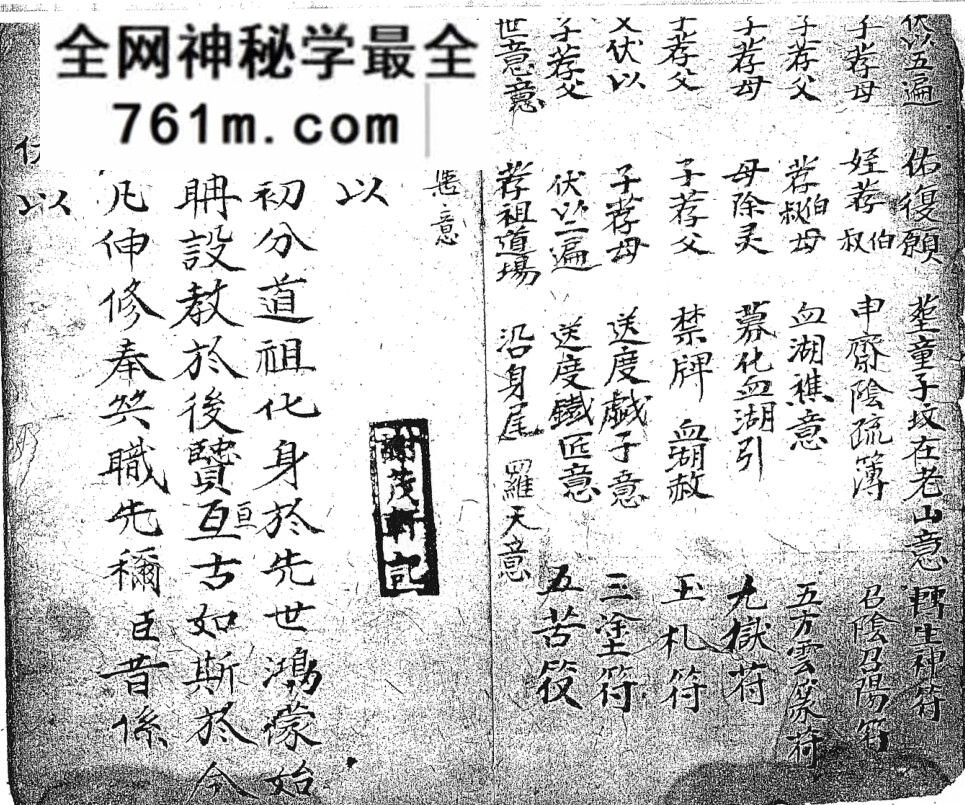 全网神秘学最全
761m.com
伏以五遍 佑復願 塟童子坟在老山意 轉生神符
子荐母 姪荐伯叔 申齋陰疏簿 召陰召陽符
子荐父 荐伯叔母 血湖樵意 五方雲篆符
子荐母 母除灵 募化血湖引 九獄符
子荐父 子荐父 禁牌 血湖赦 玉札符
父伏以 子荐母 送度戲子意 三塗符
子荐父 伏以一遍 送度鐵匠意 五苦符
世意意 荐祖道場 沿身尾 羅天意
意
謝茂軒記
以
初分道祖化身於先世鴻濛始
聃設教於後賢亘古如斯於今
亘
凡伸修奉共職先禰臣昔係
以